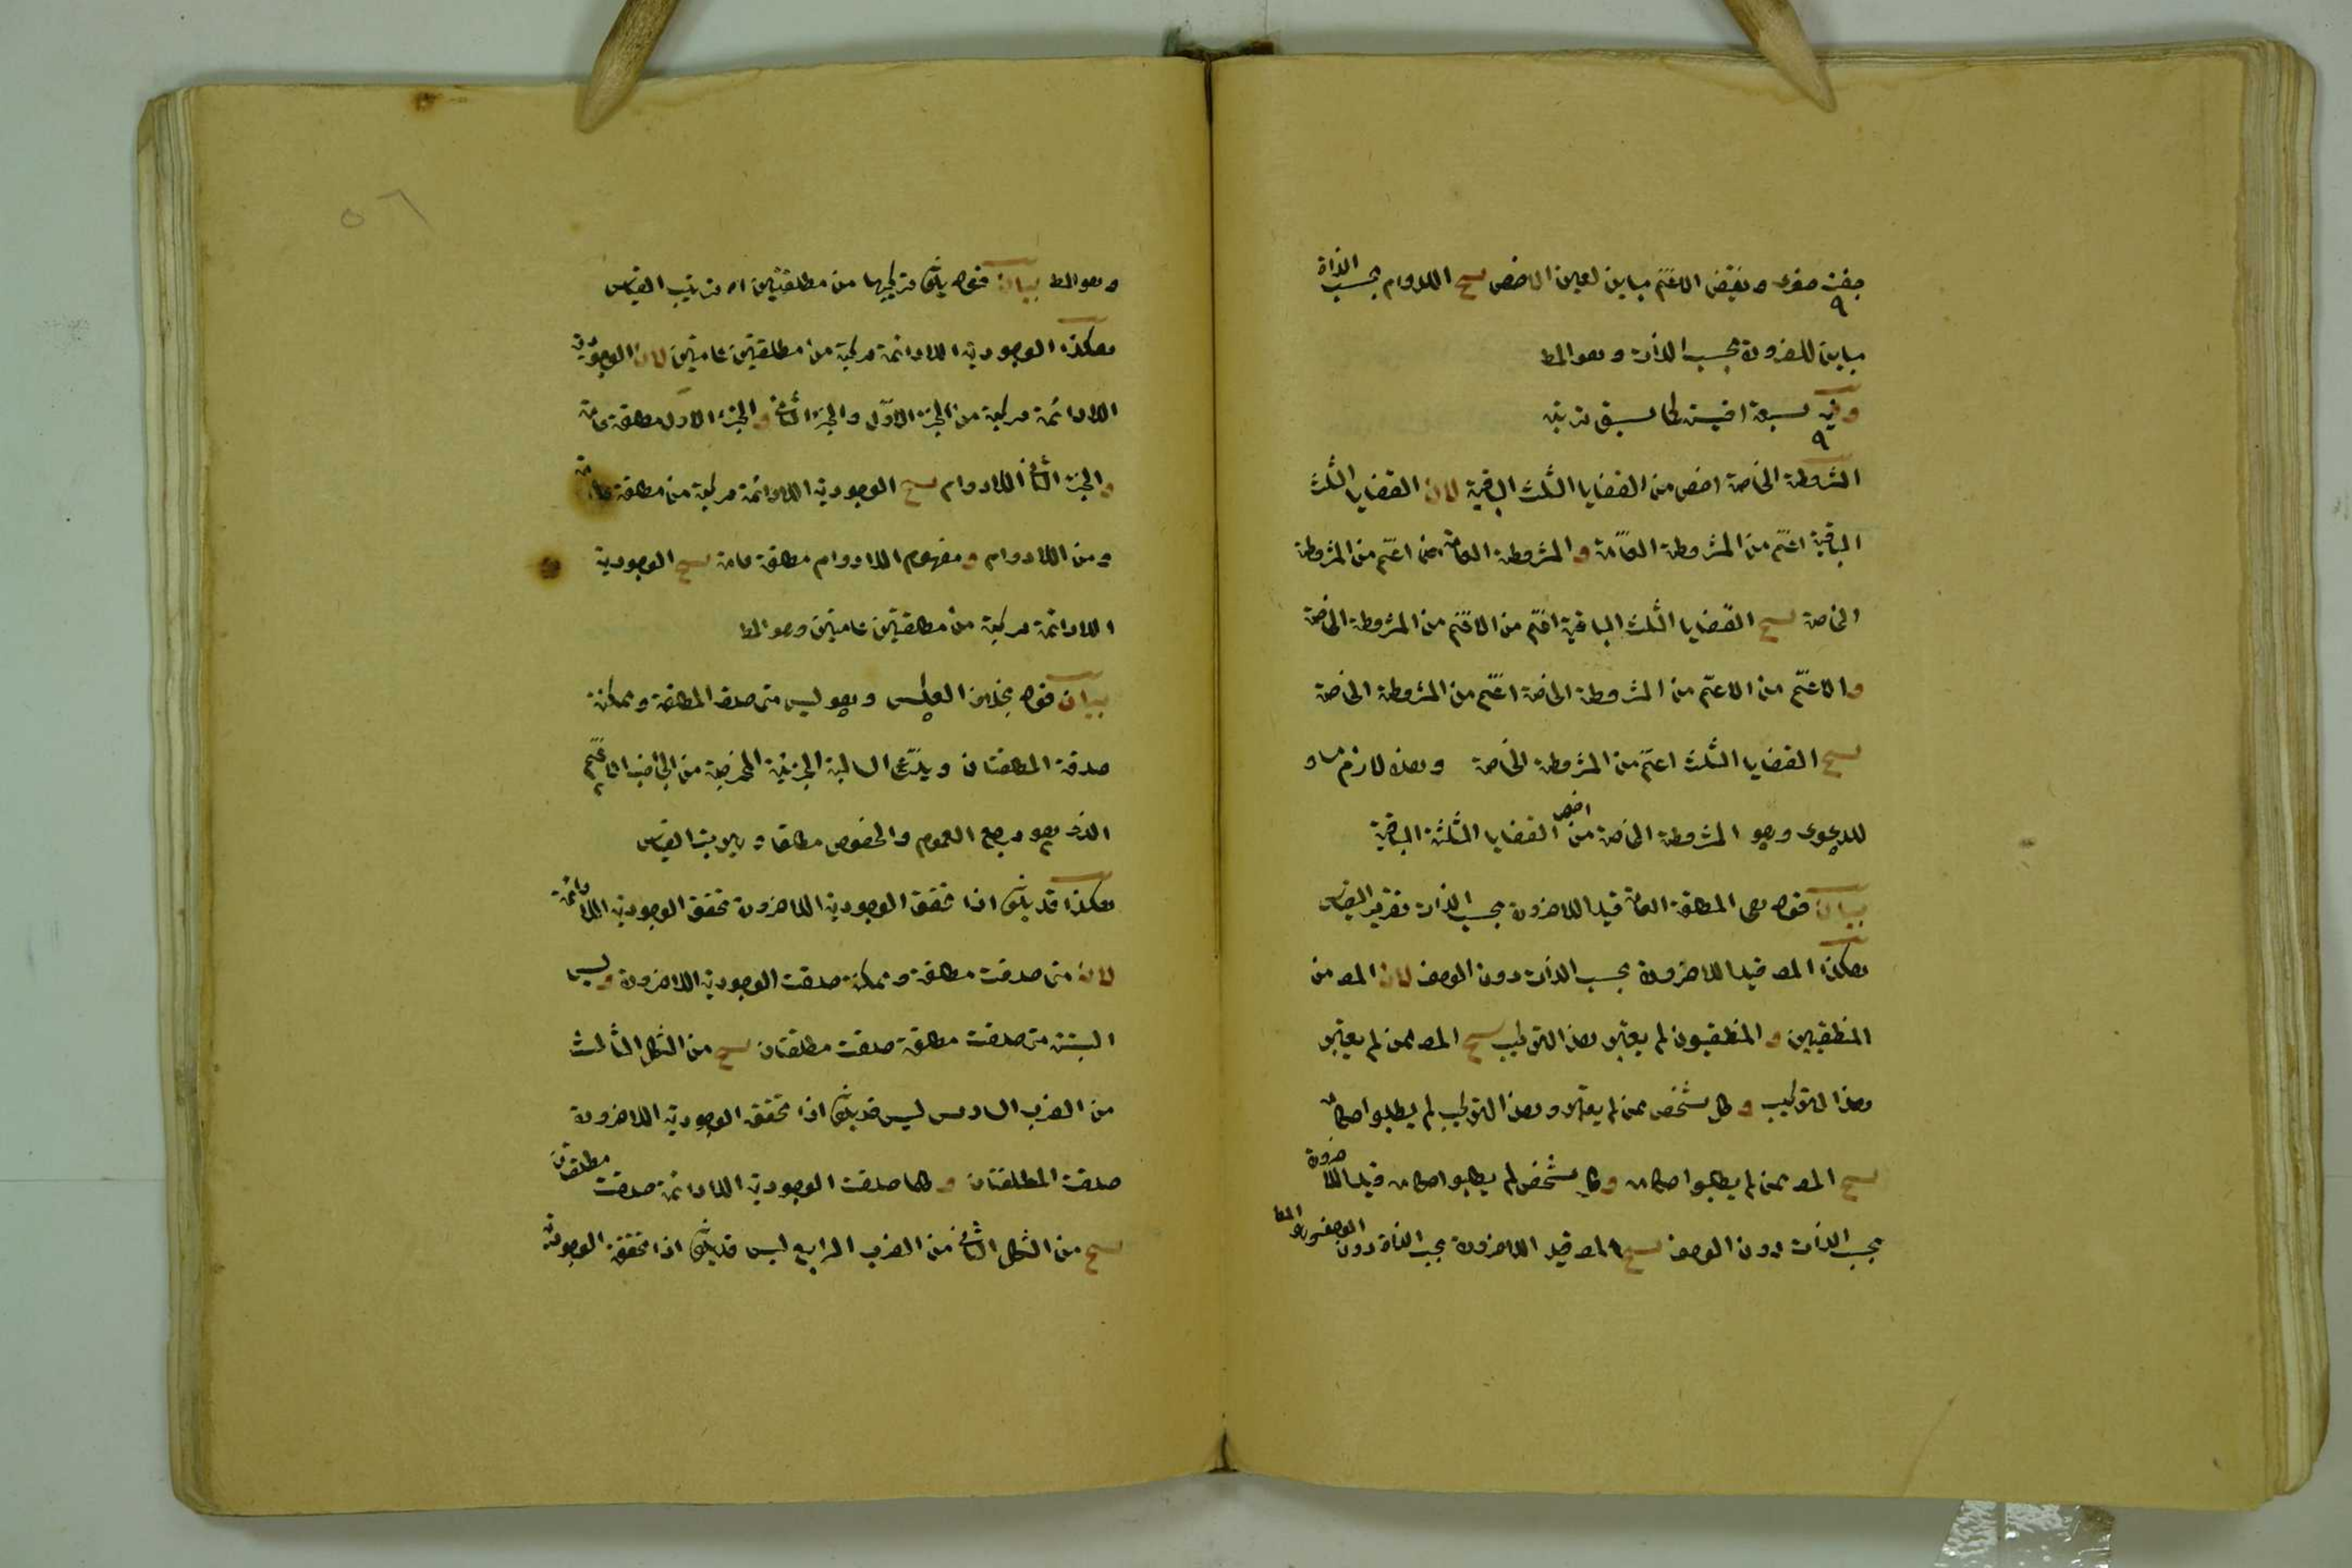 ونقيض الاعم مباين لعين الاخص ينتج اللادوام بحسب الذاة
مباين للضرورة بحسب الذات وهو المط
وفيه سبعة اقيسة كما سبق ترتيبه
المشروطة الخاصة اخص من القضايا الثلث الباقية لان القضايا الثلث
الباقية اعم من المشروطة العامة والمشروطة العامة اعم من المشروطة
الخاصة ينتج القضايا الثلث الباقية اعم من الاعم من المشروطة الخاصة
والاعم من الاعم من المشروطة الخاصة اعم من المشروطة الخاصة
ينتج القضايا الثلث اعم من المشروطة الخاصة وهذا لازم مساو
للدعوى وهو المشروطة الخاصة اخص من القضايا الثلثة الباقية
بيان قوله هى المطلقة العامة قيد اللاضرورة بحسب الذات تقرير القياس
هكذا المص قيد اللاضرورة بحسب الذات دون الوصف لان المص من
المنطقيين والمنطقيون لم يعتبر هذا التركيب ينتج المص ممن لم يعتبر
هذا التركيب وكل شخص ممن لم يعتبر هذا التركيب لم يطلبوا احكامه
ينتج المص ممن لم يطلبوا احكامه وكل شخص لم يطلبوا احكامه قيد اللاضرورة
بحسب الذات دون الوصف ينتج المص قيد اللاضرورة بحسب الذاة دون الوصف وهو المط
٥٦
وهو المط بيان قوله تركيبها من مطلقتين اه ترتيب القياس
هكذا الوجودية اللادائمة مركبة من مطلقتين عامتين لان الوجودية
اللادائمة مركبة من الجزء الاول والجزء الثانى والجزء الاول مطلقة عامة
والجزء الثانى اللادوام ينتج الوجودية اللادائمة مركبة من مطلقة عامة
ومن اللادوام ومفهوم اللادوام مطلقة عامة ينتج الوجودية
اللادائمة مركبة من مطلقتين عامتين وهو المط
بيان قوله بخلاف العكس وهو ليس متى صدق المطلقة وممكنة
صدقة المطلقتان ويدعى السالبة الجزئية من الجانب الاعم
الذى هو مرجع العموم والخصوص مطلقا القياس
هكذا قد يكون اذا تحقق الوجودية اللاضرورة تحقق الوجودية اللادائمة
لان متى صدقت مطلقة وممكنة صدقت الوجودية اللاضرورة وليس
البتة متى صدقت مطلقة صدقت مطلقتان ينتج من الشكل الثالث
من الضرب السادس ليس قد يكون اذا تحقق الوجودية اللاضرورة
صدقت المطلقتان وكلما صدقت الوجودية اللادائمة صدقت مطلقتان
ينتج من الشكل الثانى من الضرب الرابع ليس قد يكون اذا تحقق الوجودية